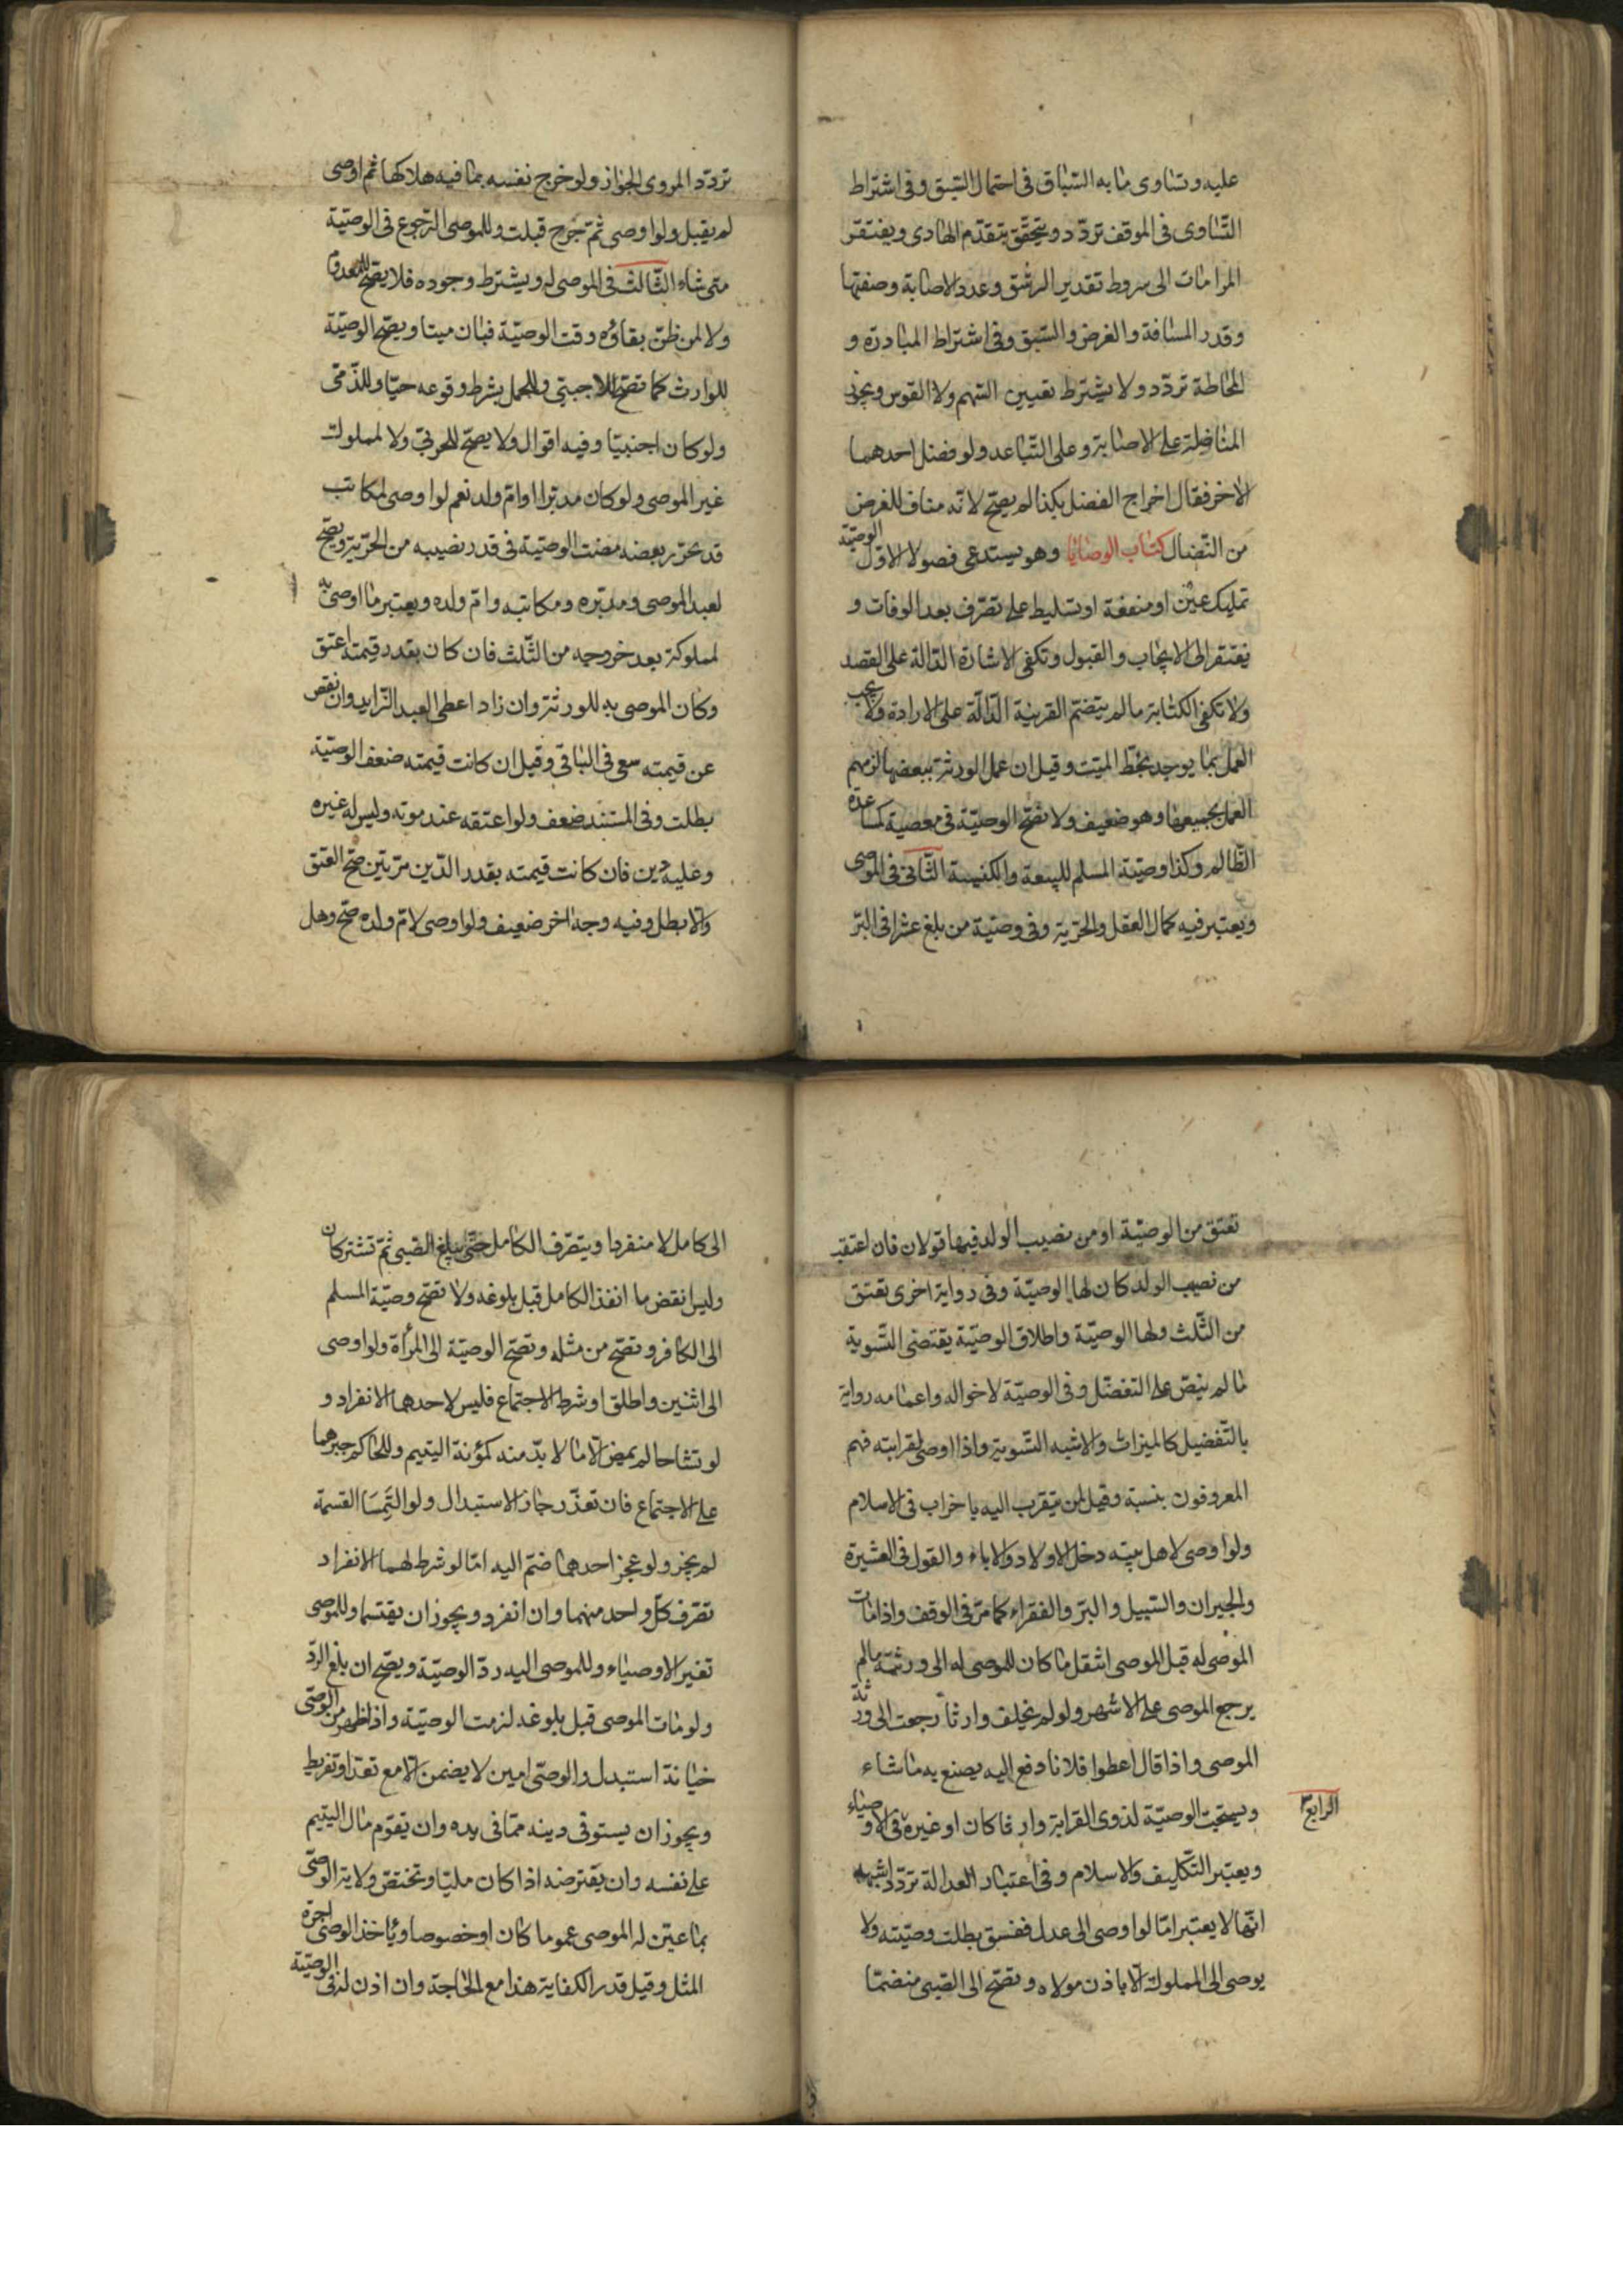 عليه وتساوى ما به السباق فى احتمال السبق وفى اشتراط
التساوى فى الموقف تردّد ويتحقق بتقدّم الهادى ويفتقر
المرامات الى شروط تقدير الرشق وعدد الاصابة وصفتها
وقدر المسافة والغرض والسبق وفى اشتراط المبادرة و
المحاطة تردّد ولا يشترط تعيين السهم ولا القوس ويجوز
المناضلة على الاصابة وعلى التباعد ولو فضل احدهما
الاخر فقال اخراج الفضل بكذا لم يصحّ لانه مناف للغرض
من النضال كتاب الوصايا وهو يستدعى فصولا الاوّل الوصيّة
تمليك عين او منفعة او تسليط على تصرّف بعد الوفات و
يفتقر الى الايجاب والقبول وتكفى الاشارة الدالة على القصد
ولا تكفى الكتابة ما لم ينضمّ القرينة الدّالّة على الارادة ولا يجب
العمل بما يوجد بخطّ الميّت وقيل ان عمل الورثة ببعضها لزمهم
العمل بجميعها وهو ضعيف ولا تصحّ الوصيّة فى معصية كمساعدة
الظالم وكذا وصيّة المسلم للبيعة والكنيسة الثّانى فى الموصى
ويعتبر فيه كمال العقل والحرّية وفى وصيّة من بلغ عشرا فى البرّ
تردّد المروى الجواز ولو خرج نفسه بما فيه هلاكها ثم اوصى
لم يقبل ولو اوصى ثمّ جرح قبلت وللموصى الرّجوع فى الوصيّة
متى شاء الثّالث فى الموصى له ويشترط وجوده فلا يصحّ للمعدوم
ولا لمن ظنّ بقاؤه وقت الوصيّة فبان ميتا ويصحّ الوصيّة
للوارث كما تصحّ للاجنبى وللحمل بشرط وقوعه حيّا وللذّمّى
ولو كان اجنبيّا وفيه اقوال ولا يصحّ للحربىّ ولا لمملوك
غير الموصى ولو كان مدبّرا او امّ ولد نعم لو اوصى لمكاتب
قد تحرّر بعضه مضت الوصيّة فى قدر نصيبه من الحرّية ويصحّ
لعبد الموصى ومدبّره ومكاتبه وامّ ولده ويعتبر ما اوصى به
لمملوكه بعد خروجه من الثّلث فان كان بقدر قيمته اعتق
وكان الموصى به للورثة وان زاد اعطى العبد الزّايد وان نقص
عن قيمته سعى فى الباقى وقيل ان كانت قيمته ضعف الوصيّة
بطلت وفى المستند ضعف ولو اعتقه عند موته وليس له غيره
وعليه دين فان كانت قيمته بقدر الدّين مرّتين صحّ العتق
والّا بطل وفيه وجه اخر ضعيف ولو اوصى لامّ ولده صحّ وهل
تعتق من الوصيّة او من نصيب الولد فيها قولان فان اعتقد
من نصيب الولد كان لها الوصيّة وفى رواية اخرى تعتق
من الثّلث ولها الوصيّة واطلاق الوصيّة يقتضى التّسوية
ما لم ينصّ على التفضّل وفى الوصيّة لاخواله واعمامه رواية
بالتّفضيل كالميراث والاشبه التّسوية واذا اوصى لقرابته فهم
المعروفون بنسبه وقيل لمن يتقرب اليه باخراب فى الاسلام
ولو اوصى لاهل بيته دخل الاولاد والاباء والقول فى العشيرة
والجيران والسّبيل والبرّ والفقراء كما مرّ فى الوقف واذا مات
الموصى له قبل الموصى انتقل ما كان للموصى له الى ورثته ما لم
يرجع الموصى على الاشهر ولو لم يخلف وارثا رجعت الى ورثة
الموصى واذا قال اعطوا فلانا دفع اليه يصنع به ما شاء
ويستحبّ الوصيّة لذوى القرابة وارثا كان او غيره فى الاوصياء
الرابع
ويعتبر التّكليف والاسلام وفى اعتبار العدالة تردّد اشبهه
انّها لا يعتبر امّا لو اوصى الى عدل ففسق بطلت وصيّته ولا
يوصى الى المملوك الّا باذن مولاه وتصحّ الى الصّبى منضمّا
الى كامل لا منفردا ويتصرّف الكامل حتّى يبلغ الصّبى ثمّ تشتركان
وليس نقض ما انفذ الكامل قبل بلوغه ولا تصحّ وصيّة المسلم
الى الكافر وتصحّ من مثله وتصحّ الوصيّة الى المرأة ولو اوصى
الى اثنين واطلق او شرط الاجتماع فليس لاحدهما الانفراد و
لو تشاحا لم يمض الّا ما لا بدّ منه كمؤنة اليتيم وللحاكم جبرهما
على الاجتماع فان تعذّر جاز الاستبدال ولو التمسا القسمة
لم يجز ولو عجز احدهما ضمّ اليه امّا لو شرط لهما الانفراد
تصرّف كلّ واحد منهما وان انفرد ويجوز ان يقتسما وللموصى
تغير الاوصياء وللموصى اليه ردّ الوصيّة ويصحّ ان بلغ الردّ
ولو مات الموصى قبل بلوغه لزمت الوصيّة واذا ظهر من الوصّى
خيانة استبدل والوصّى امين لا يضمن الّا مع تعدّ او تفريط
ويجوز ان يستوفى دينه ممّا فى يده وان يقوّم مال اليتيم
على نفسه وان يقترضه اذا كان مليّا وتختصّ ولاية الوصّى
بما عيّن له الموصى عموما كان او خصوصا ويأخذ الوصّى اجرة
المثل وقيل قدر الكفاية هذا مع الحاجة وان اذن له فى الوصيّة